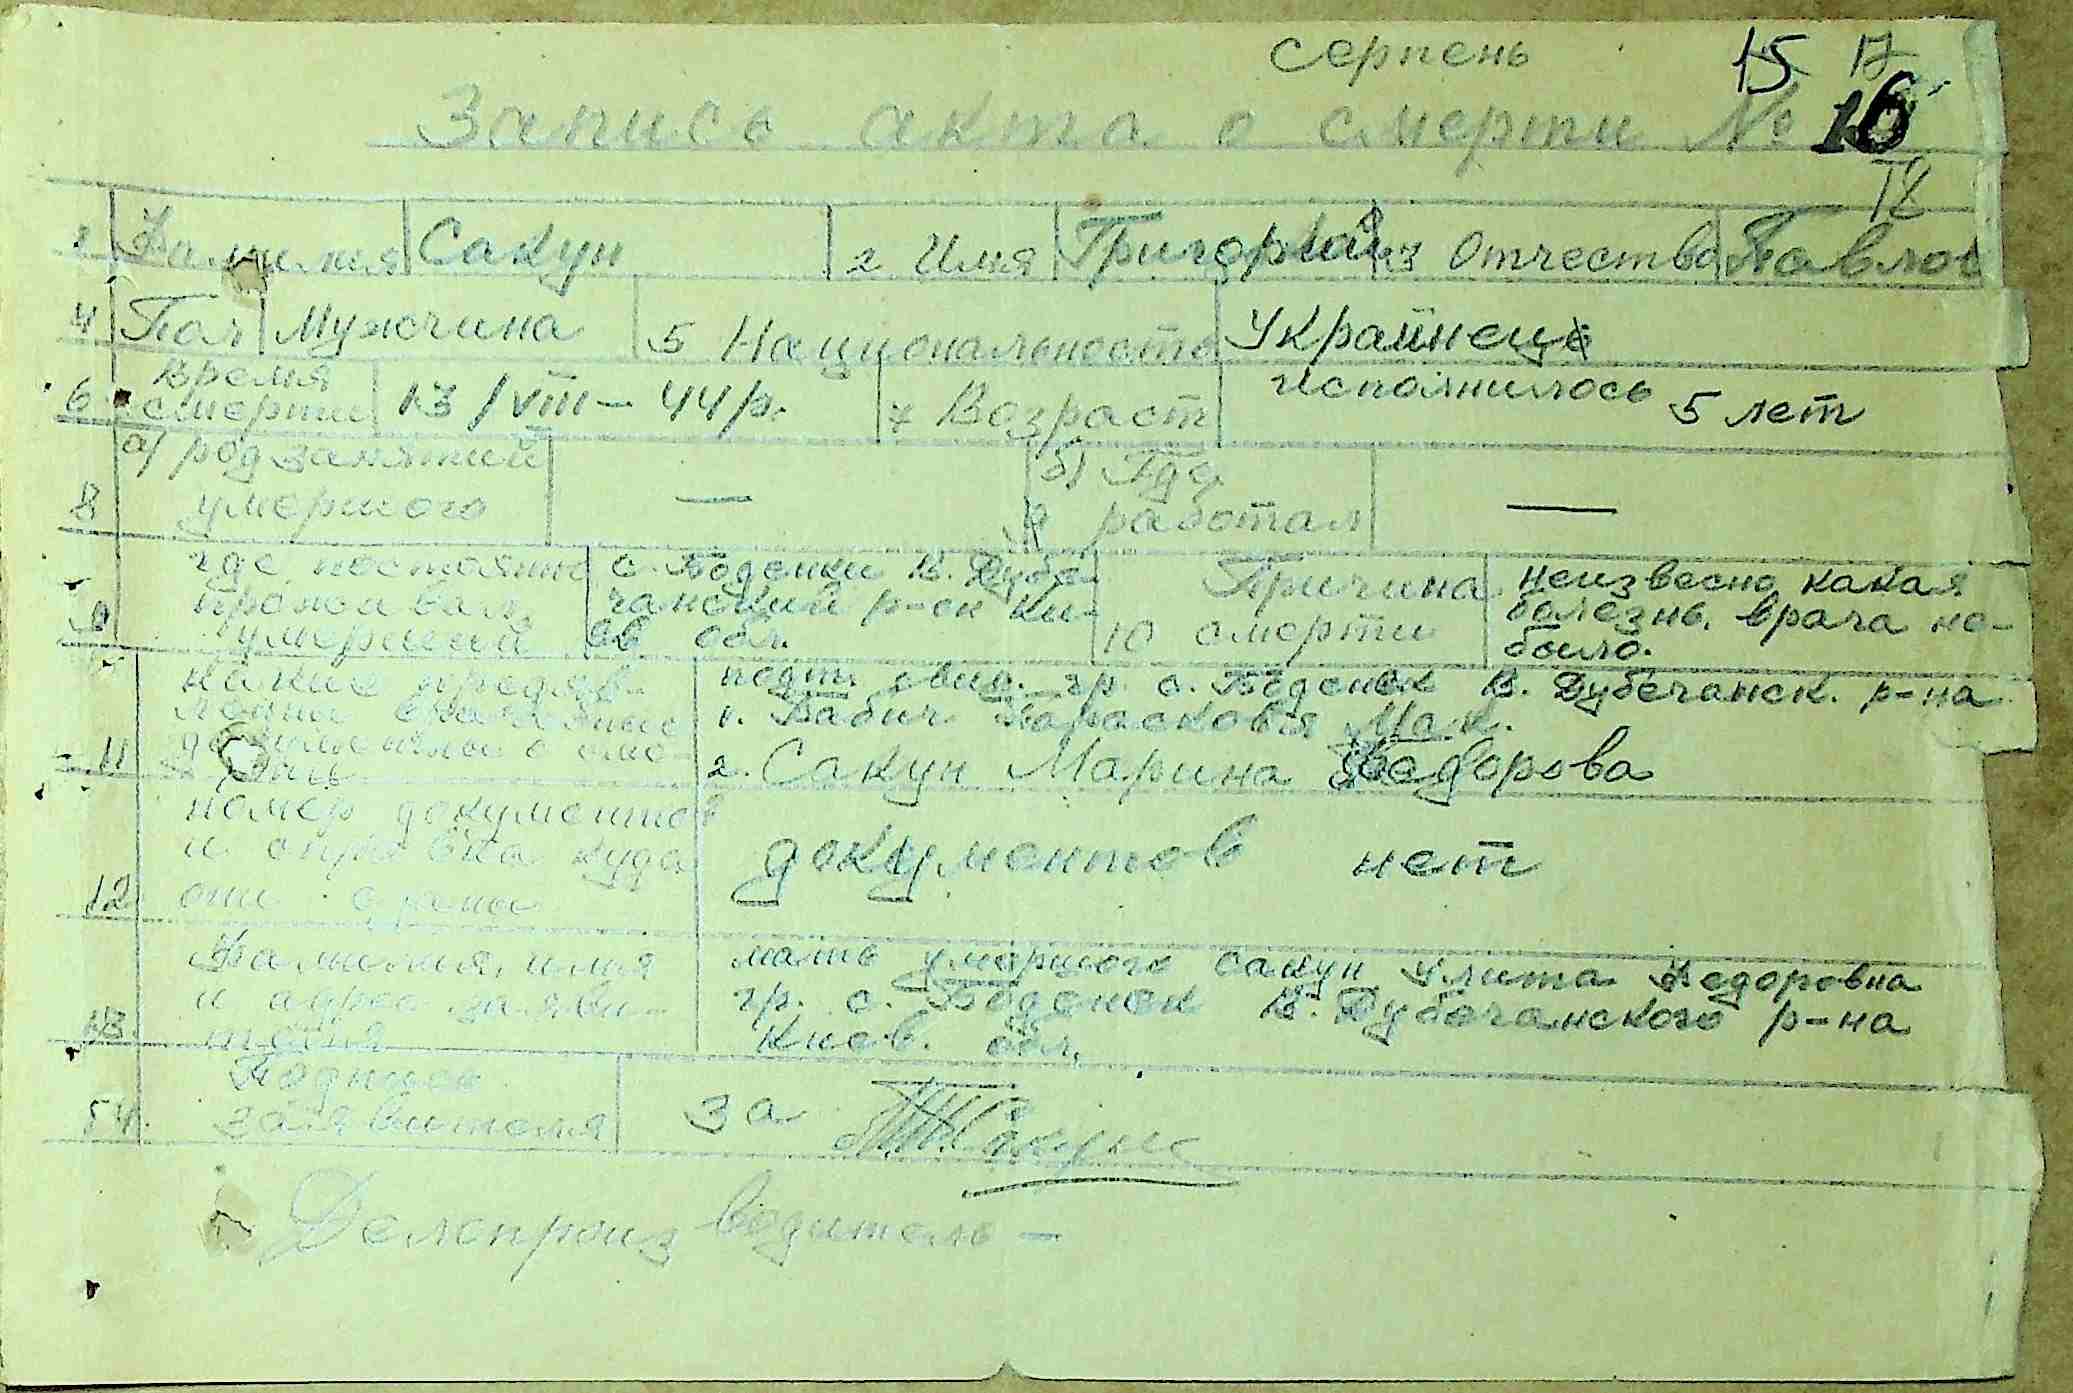 Серпень 15 17
Запись акта о смерти № 16
18
1 Фамилия Сакун 2 Имя Григорий 3 Отчество Павлов
4 Пол Мужчина 5 Национальность Украинец
6 Время смерти 13/VIII – 44 р. 7 Возраст исполнилось 5 лет
8 а) род занятий умершого — б) Где работал —
9 где постоянно проживал умерший с. Боденки В. Дубечанский р-он Киев обл. 10 Причина смерти неизвесно какая болезнь, врача не было.
11 какие предяв- документы о смерти
гр. с. Боденек В. Дубечанск. р-на
1. Бабич Парасковья Мак.
2. Сакун Марина Федорова
12 номер документов и справка куда они документов нет
13 Фамилия, имя и адрес заяви-теля
мать умершого Сакун Улита Федоровна
гр. с. Боденек В. Дубечанского р-на
Киев. обл.
14. Подпись заявителя за Сакун
Делопроизводитель –